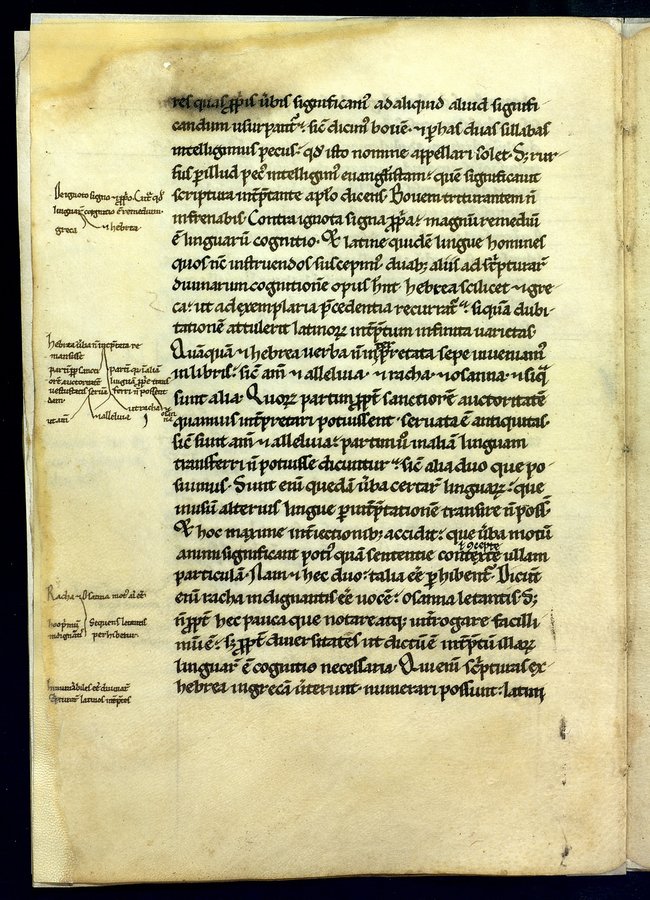 res quas ꝓpͥis ūbis significamꝰ ad aliquid aliud signifi
candum usurpant᷑. sic̄ dicimꝰ bouē. ⁊ ꝑ has duas sillabas
intelligimus pecus. qd̄ isto nomine appellari solet. S; rur
sus ꝑ illud pecꝰ intelligimꝰ euangl̓istam. quē significauit
scriptura inꝑtante aplo dicens. Bouem triturantem n̄
infrenabis. Contra ignota signa ꝓpͥa. magnū remediū
ē linguarū cognitio. Et latine quidē lingue homines
quos nc̄ instruendos suscepimꝰ. duab; aliis ad sc̄pturar̄
diuinarum cognitionē opus hn̄t. hebrea scilicet ⁊ gre
ca. ut ad exemplaria p̄cedentia recurrat᷑. siquā dubi
tationē attulerit latinoꝝ int̄p̄tum infinita uarietas.
Quāquā ⁊ hebrea uerba n̄ int̄p̄retata sepe inueniamꝰ
in libris. sic̄ am̄ ⁊ alleluia. ⁊ racha. ⁊ osanna. ⁊ siq̄
sunt alia. Quoꝝ partim ꝓpt̄ sanctiorē auctoritatē
quamuis int̄p̄tari potuissent. seruata ē antiquitas.
sic̄ sunt am̄ ⁊ alleluia. partim ū in aliam linguam
transferri n̄ potuisse dicuntur. sic̄ alia duo que po
suimus. Sunt enī quedā ūba certar̄ linguaꝝ. que
in usum alterius lingue ꝑ int̄p̄tationē transire n̄ poss̄.
Et hoc maxime int̄iectionib; accidit. que ūba motū
animi significant potiꝰ quā sententie contexte ullam
⁊ ꝯcepte
particulā. Nam ⁊ hec duo. talia eē ꝑhibent᷑. Dicūt
enī racha indignantis eē uocē. osanna letantis. S;
n̄ ꝓpt̄ hec pauca que notare atq; int̄rogare facilli
mū ē. s; ꝓpt̄ diuersitates ut dictū ē int̄p̄tū illaꝝ
linguar̄ ē cognitio necessaria. Qui enī sc̄pturas ex
hebrea in grecā ūterunt. numerari possunt. latini
De ignoto signo ⁊ ꝓpͥo. Cont̄ qd̄
linguar̄ cognitio ē remedium.
greca
⁊ hebrea.
hebrea ūba n̄ int̄p̄tata re
mansisse
partī ꝓp̄ sancti
orē auctoritatē
uetustatis serua
dam
ut am̄
⁊ alleluia
partī q̄ in aliā
linguā ꝓpͥe trans
ferri n̄ possent
ut racha
⁊ osan
na
Racha ⁊ Osanna motꝰ al̓ eē.
hoc primū
indignātis
Sequens letantis
perhibetur.
Innum̄abiles eē diuinar̄
sc̄pturar̄ latinos int̄p̄tes